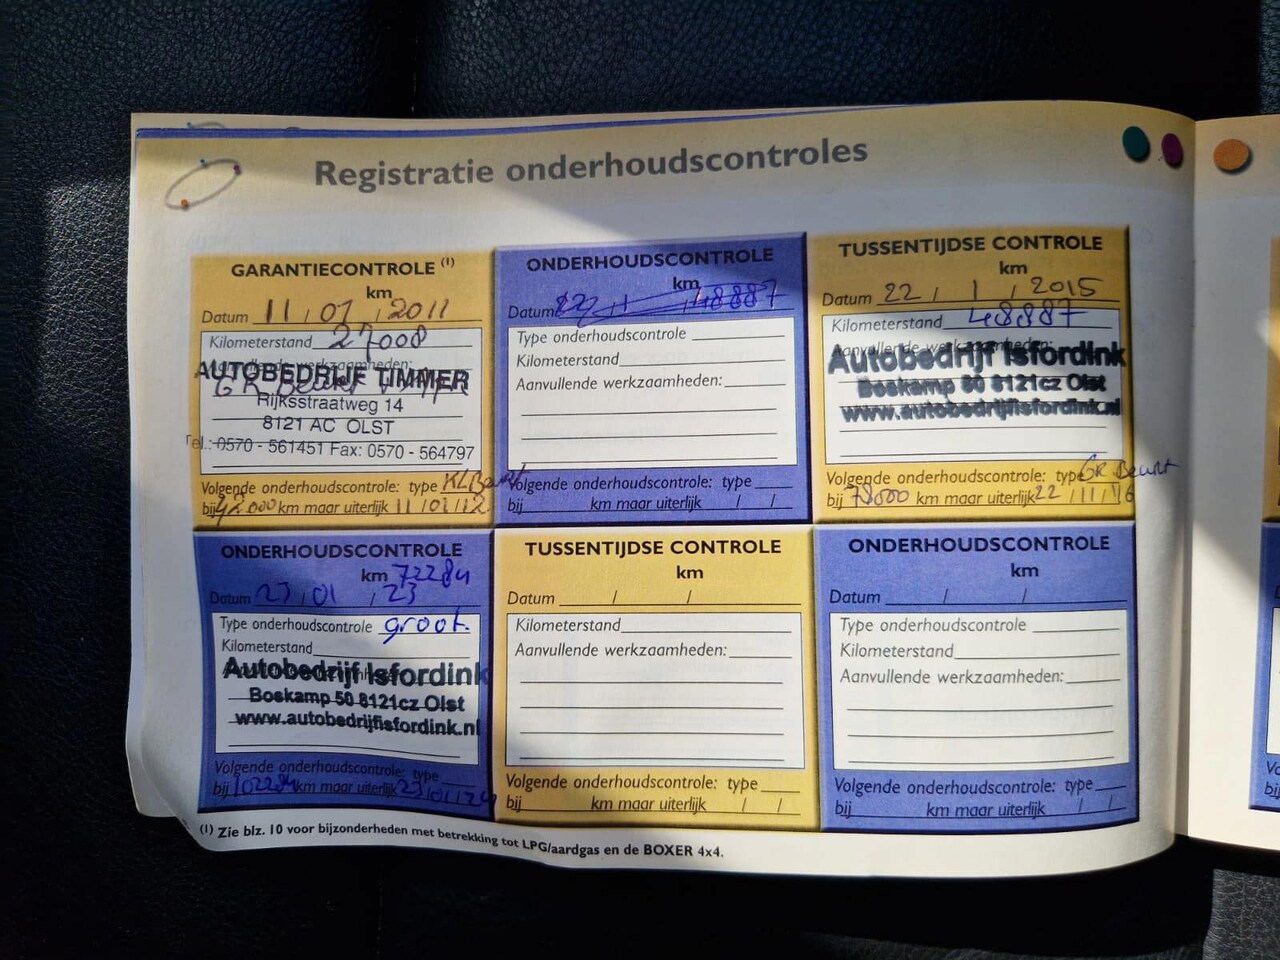 Registratie onderhoudscontroles
GARANTIECONTROLE (1)
km
Datum 11 / 01 / 2011
Kilometerstand 27008
Aanvullende werkzaamheden:
AUTOBEDRIJF TIMMER
Rijksstraatweg 14
8121 AC OLST
Tel.: 0570 - 561451 Fax: 0570 - 564797
Volgende onderhoudscontrole: type KL Beurt
bij 42000 km maar uiterlijk 11/01/12
ONDERHOUDSCONTROLE
km
Datum 22 / 1 / 48887
Type onderhoudscontrole
Kilometerstand
Aanvullende werkzaamheden:
Volgende onderhoudscontrole: type
bij km maar uiterlijk / /
TUSSENTIJDSE CONTROLE
km
Datum 22 / 1 / 2015
Kilometerstand 48887
Aanvullende werkzaamheden:
Autobedrijf Isfordink
Boskamp 50 8121cz Olst
www.autobedrijfisfordink.nl
Volgende onderhoudscontrole: type GR Beurt
bij 78000 km maar uiterlijk 22 / /16
ONDERHOUDSCONTROLE
km 72284
Datum 23 / 01 / 23
Type onderhoudscontrole groot.
Kilometerstand
Autobedrijf Isfordink
Boskamp 50 8121cz Olst
www.autobedrijfisfordink.nl
Volgende onderhoudscontrole: type
bij 102284 km maar uiterlijk 23/01/24
TUSSENTIJDSE CONTROLE
km
Datum / /
Kilometerstand
Aanvullende werkzaamheden:
Volgende onderhoudscontrole: type
bij km maar uiterlijk / /
ONDERHOUDSCONTROLE
km
Datum / /
Type onderhoudscontrole
Kilometerstand
Aanvullende werkzaamheden:
Volgende onderhoudscontrole: type
bij km maar uiterlijk / /
(1) Zie blz. 10 voor bijzonderheden met betrekking tot LPG/aardgas en de BOXER 4x4.